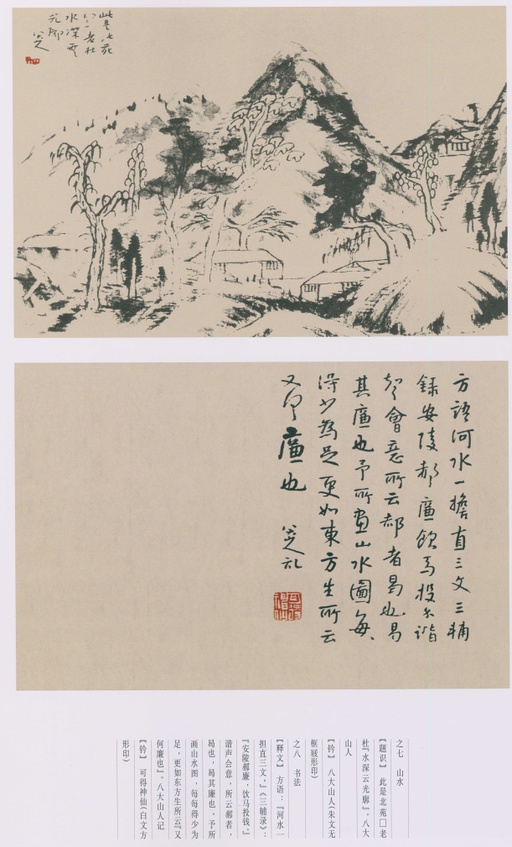 此是北苑
老杜
水深雲
光廓
八大
方語河水一擔直三文三輔
錄安陵郝廉飲馬投錢諧
聲會意所云郝者曷也曷
其廉也予所畫山水圖每〻
得少為足更如東方生所云
又何廉也 八大山人記
可得神仙
之七 山水
【题识】此是北苑□老
杜『水深云光廓』。八大
山人
【钤】八大山人(朱文无
框屐形印)
之八 书法
【释文】方语:『河水一
担直三文。』《三辅录》:
『安陵郝廉,饮马投钱。』
谐声会意,所云郝者,
曷也,曷其廉也。予所
画山水图,每每得少为
足,更如东方生所云『又
何廉也』。八大山人记
【钤】可得神仙(白文方
形印)